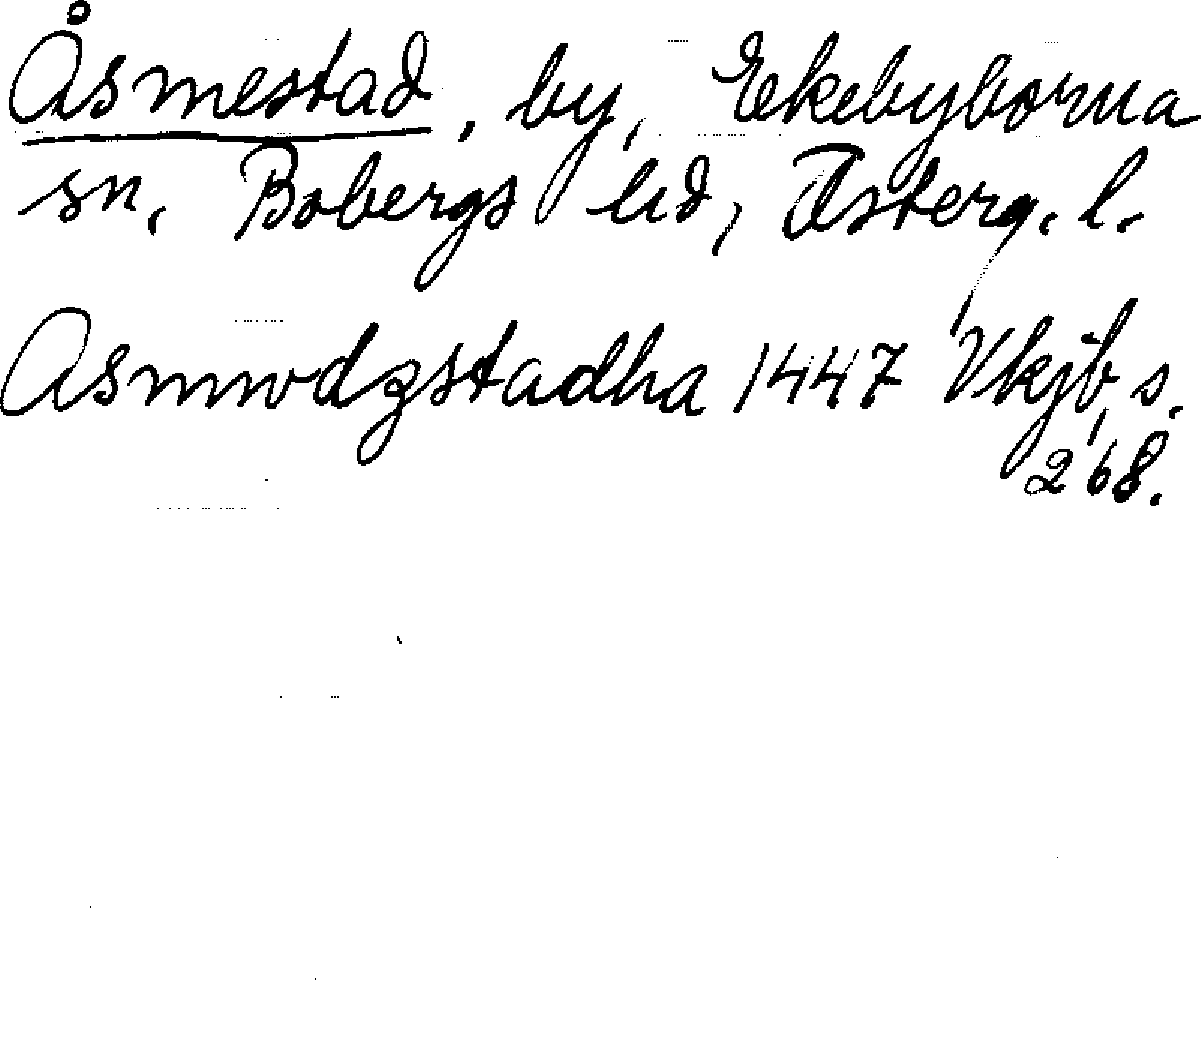 Åsmestad, by, Ekebyborna
sn, Bobergs hd, Österg. l.
Asmwdzstadha 1447 Vkjb, s.
268.